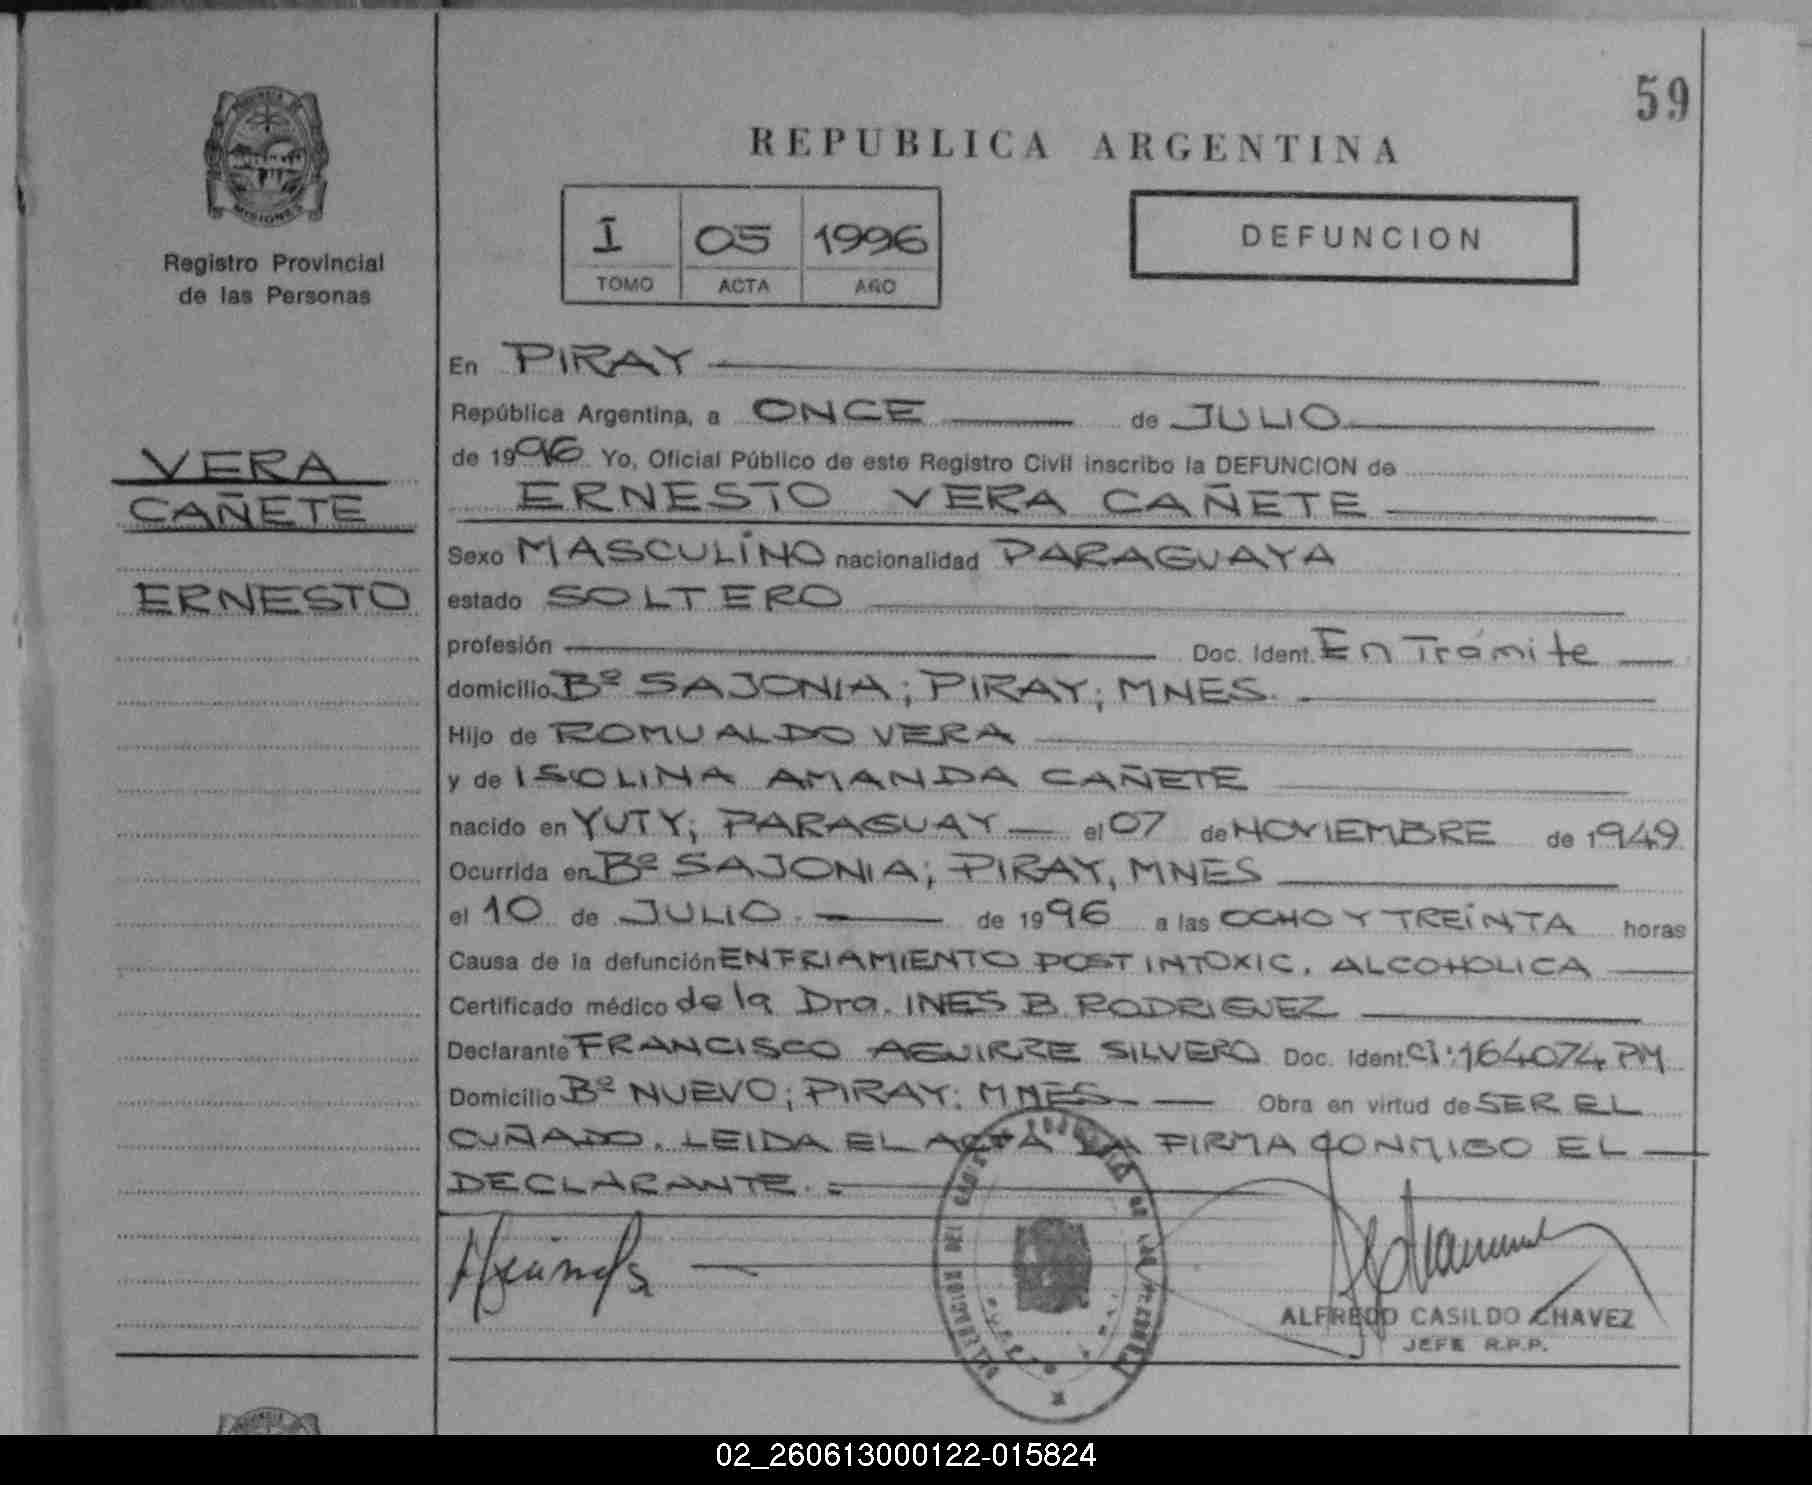 59
PROVINCIA DE
MISIONES
Registro Provincial
de las Personas
REPUBLICA ARGENTINA
I 05 1996
TOMO ACTA AÑO
DEFUNCION
VERA
CAÑETE
ERNESTO
En PIRAY
República Argentina, a ONCE de JULIO
de 1996 Yo, Oficial Público de este Registro Civil inscribo la DEFUNCION de
ERNESTO VERA CAÑETE
Sexo MASCULINO nacionalidad PARAGUAYA
estado SOLTERO
profesión Doc. Ident. En Trámite
domicilio Bº SAJONIA; PIRAY; MNES.
Hijo de ROMUALDO VERA
y de ISOLINA AMANDA CAÑETE
nacido en YUTY; PARAGUAY el 07 de NOVIEMBRE de 1949
Ocurrida en Bº SAJONIA; PIRAY, MNES
el 10 de JULIO de 1996 a las OCHO Y TREINTA horas
Causa de la defunción ENFRIAMIENTO POST INTOXIC. ALCOHOLICA
Certificado médico de la Dra. INES B. RODRIGUEZ
Declarante FRANCISCO AGUIRRE SILVERO Doc. Ident. CI: 164074 PM
Domicilio Bº NUEVO; PIRAY; MNES Obra en virtud de SER EL
CUÑADO. LEIDA EL ACTA LA FIRMA CONMIGO EL
DECLARANTE.=
ALFREDO CASILDO CHAVEZ
JEFE R.P.P.
02_260613000122-015824